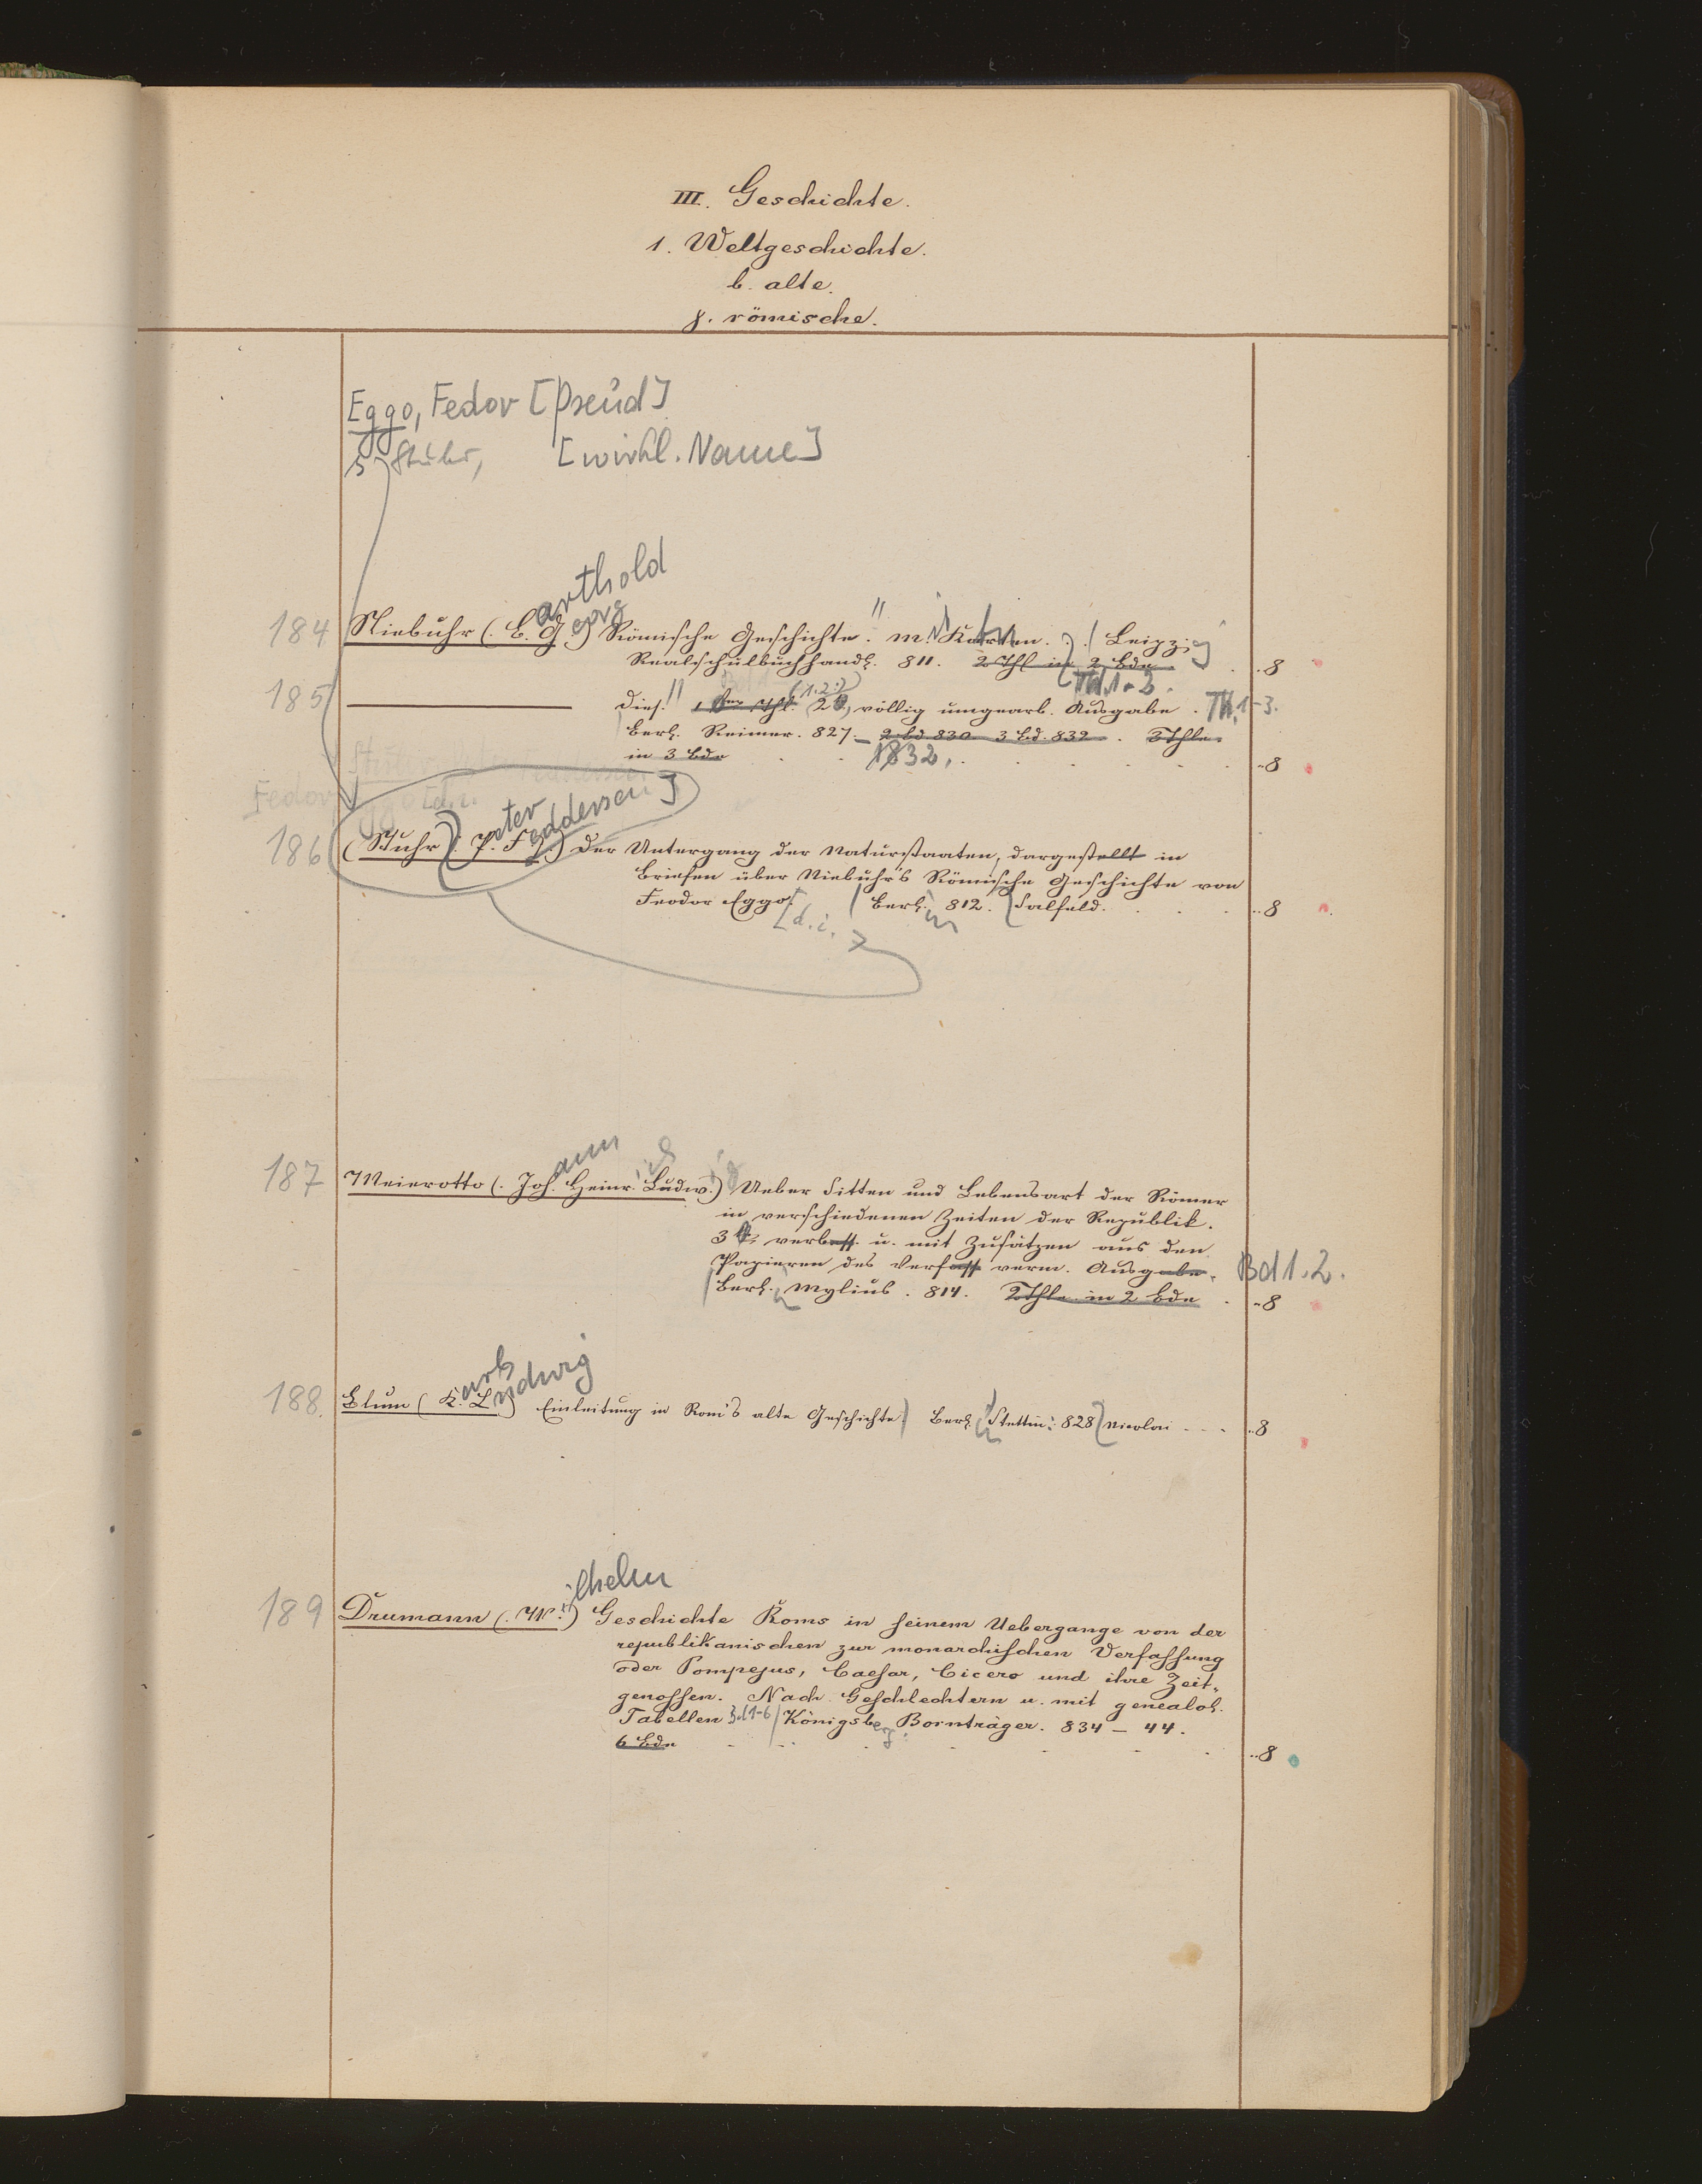 III. Geschichte.
1. Weltgeschichte.
b. alte.
γ. römische.
Eggo, Fedor [Pseud]
s. Stuhr, [wirkl. Name]
184 Niebuhr (. B.arthold G.eorg) Römische Geschichte. m. Karten. Leipzig
Realschulbuchhandl. 811. 2 Thl in 2 Bde . 8
Th. 1-2.
185 ——— Dies. 1 Thl. (1.2.) 2te, völlig umgearb. Ausgabe. Th. 1-3.
Berl. Reimer. 827. — 2 Bd 830 3 Bd. 832. 3 Thle.
in 3 Bde 1832, . 8
Fedor
186 (Stuhr (. P.eter F.eddersen] ) Der Untergang der Naturstaaten, dargestellt in
Briefen über Niebuhr's Römische Geschichte von
Feodor Eggo. Berl.in 812. Salfeld. . 8
[d. i.
187 Meierotto (. Joh.ann Heinr.ich Ludw.ig) Ueber Sitten und Lebensart der Römer
in verschiedenen Zeiten der Republik.
3te verbess. u. mit Zusätzen aus den
Papieren des Verfass verm. Ausgabe. Bd 1.2.
Berl. Mylius. 814. 2 Thle in 2 Bde . 8
188. Blum (K.arl L.udwig) Einleitung in Rom's alte Geschichte Berl. Stettin: 828 Nicolai . . . 8
189 Drumann (. W.ilhelm) Geschichte Roms in seinem Uebergange von der
republikanischen zur monarchischen Verfassung
oder Pompejus, Caesar, Cicero und ihre Zeit-
genossen. Nach Geschlechtern u. mit genealog.
Tabellen Bd 1-6 Königsberg. Bornträger. 834 — 44.
6 Bde . 8